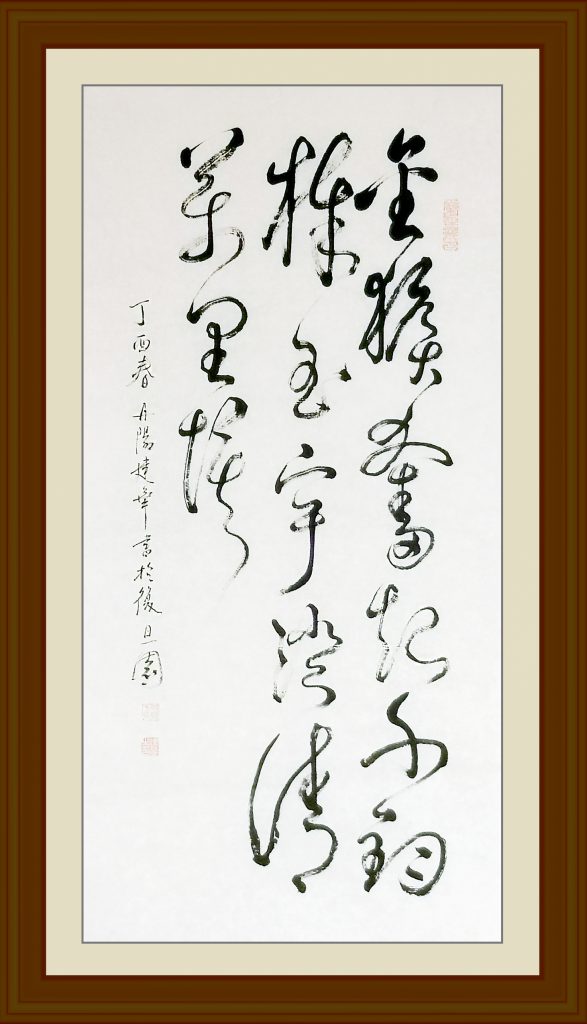 金猴奮起千鈞
棒玉宇澄清
萬里埃
丁酉春丹陽華書於復旦園